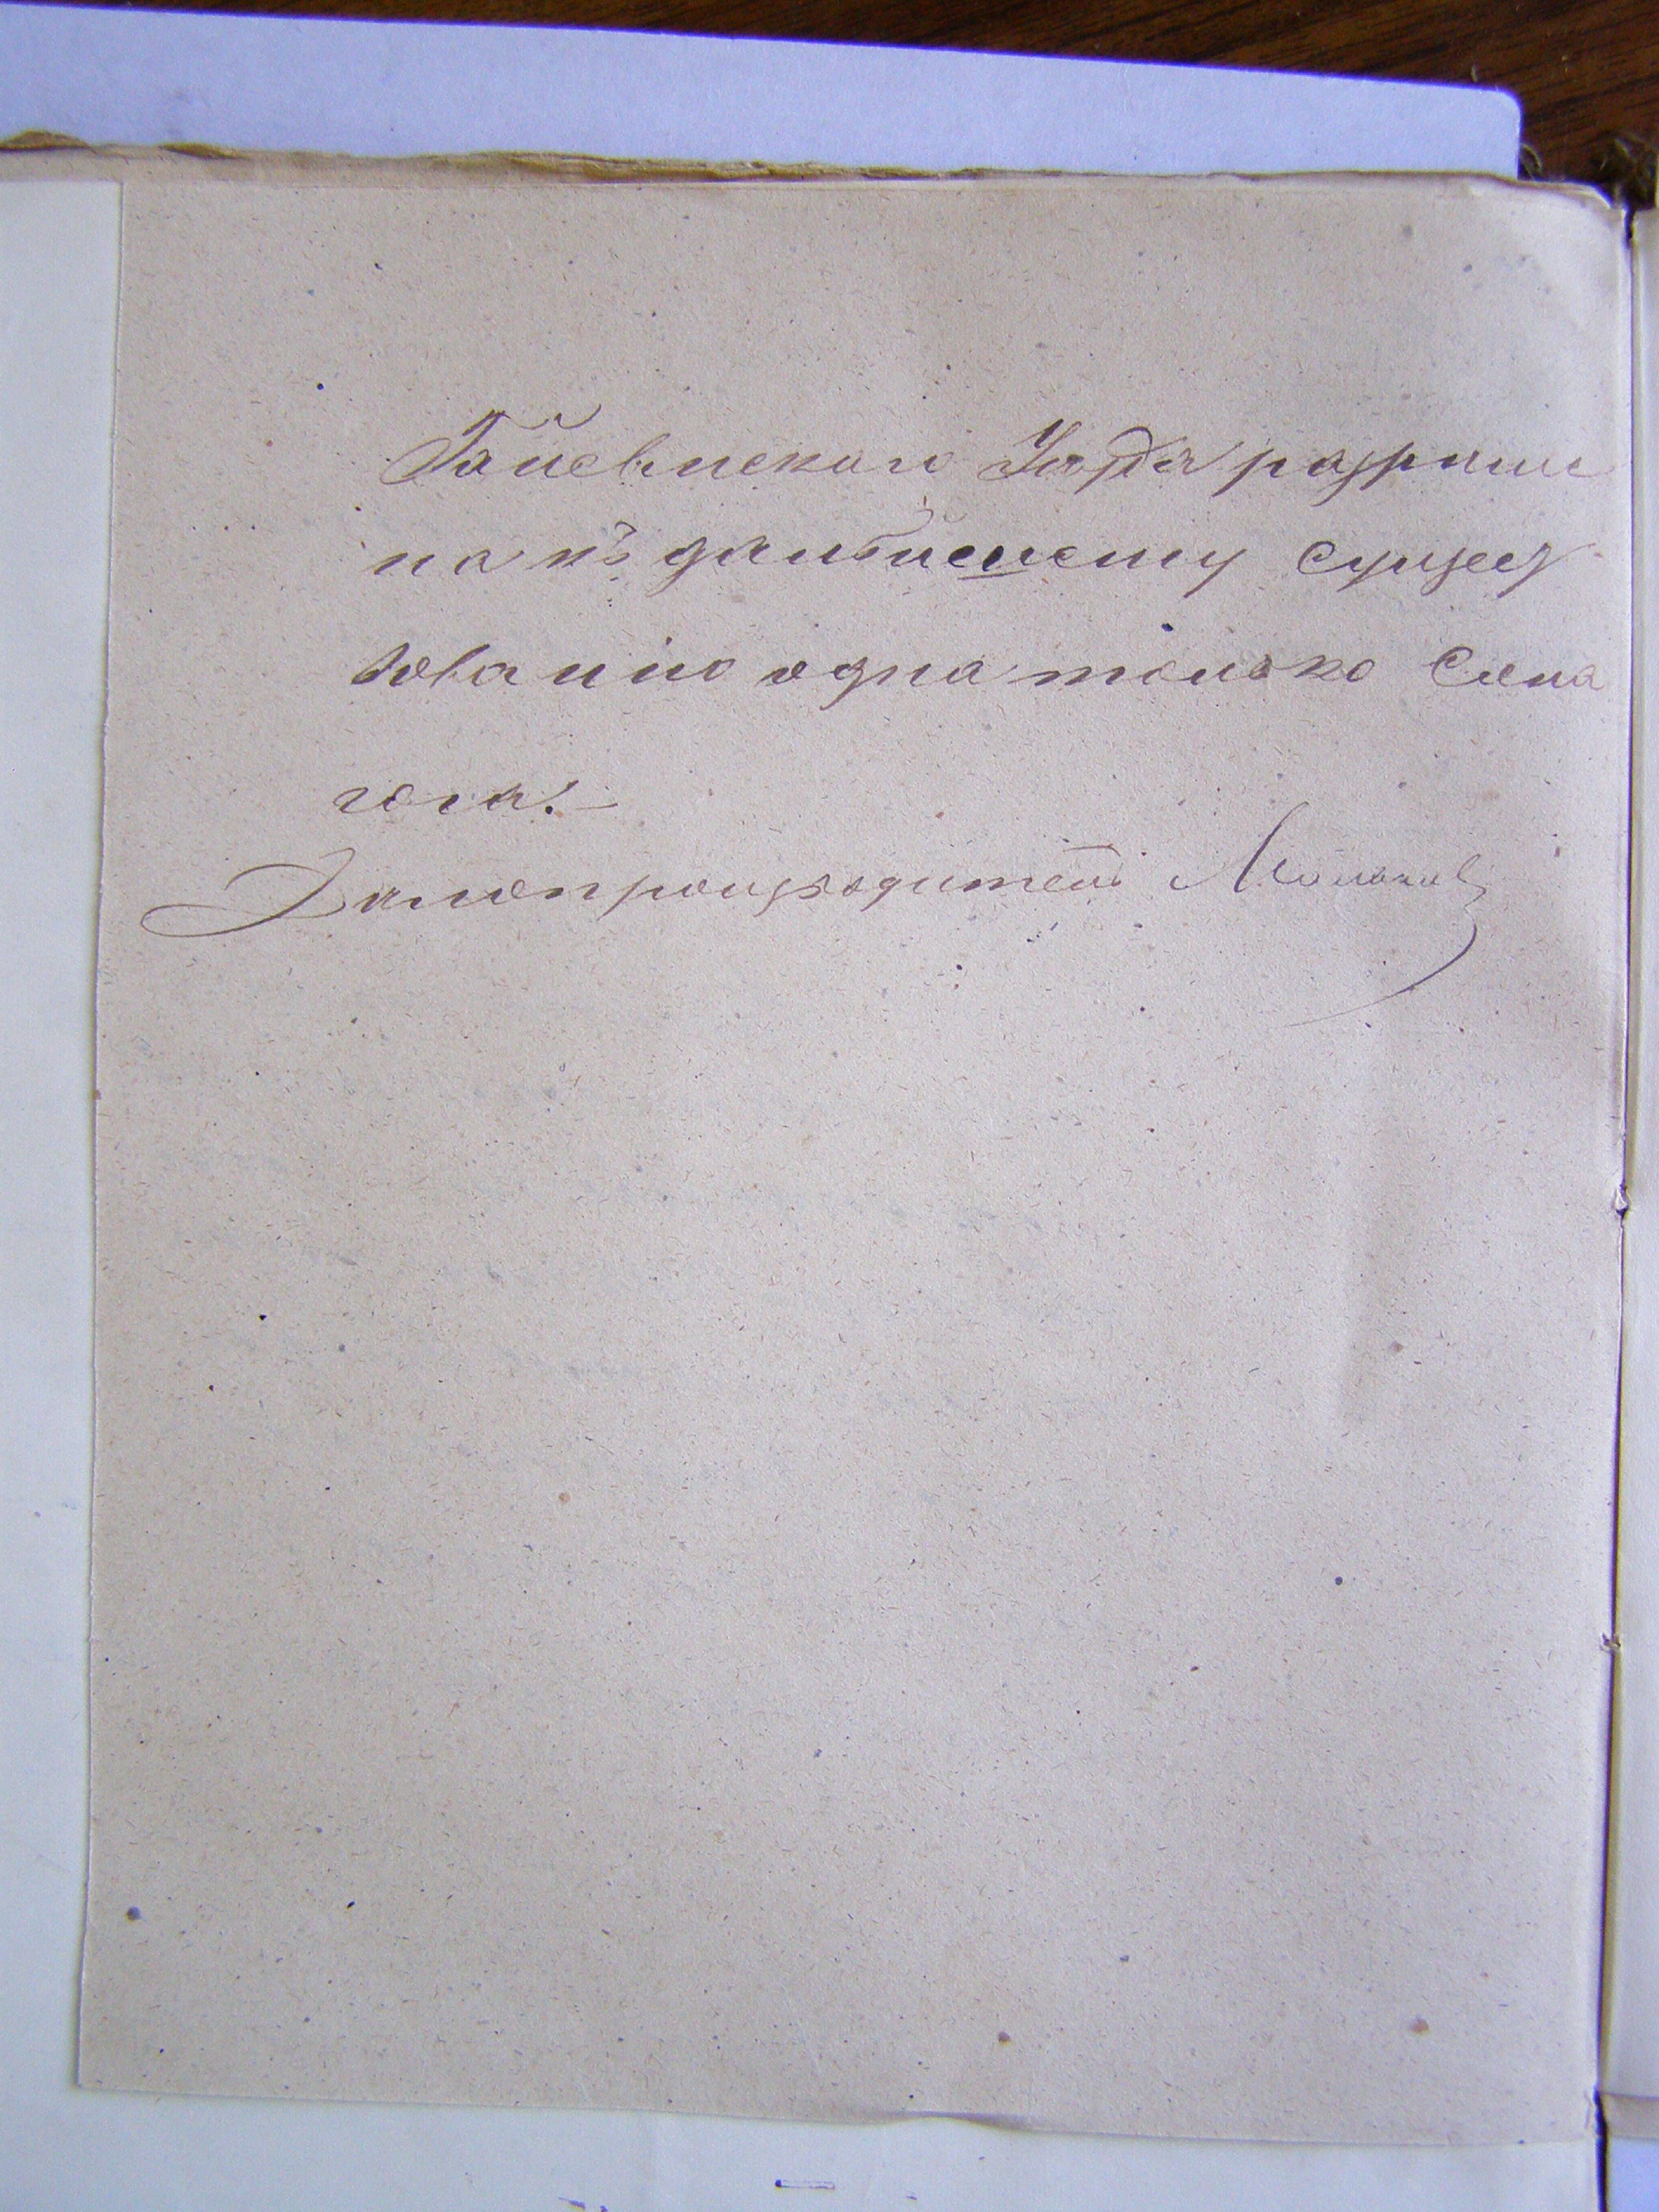 Гайсинскаго Уѣзда разрѣше
на къ дальнейшему сущест
вованію одна только Сина
гога.–
Делопроизводитель